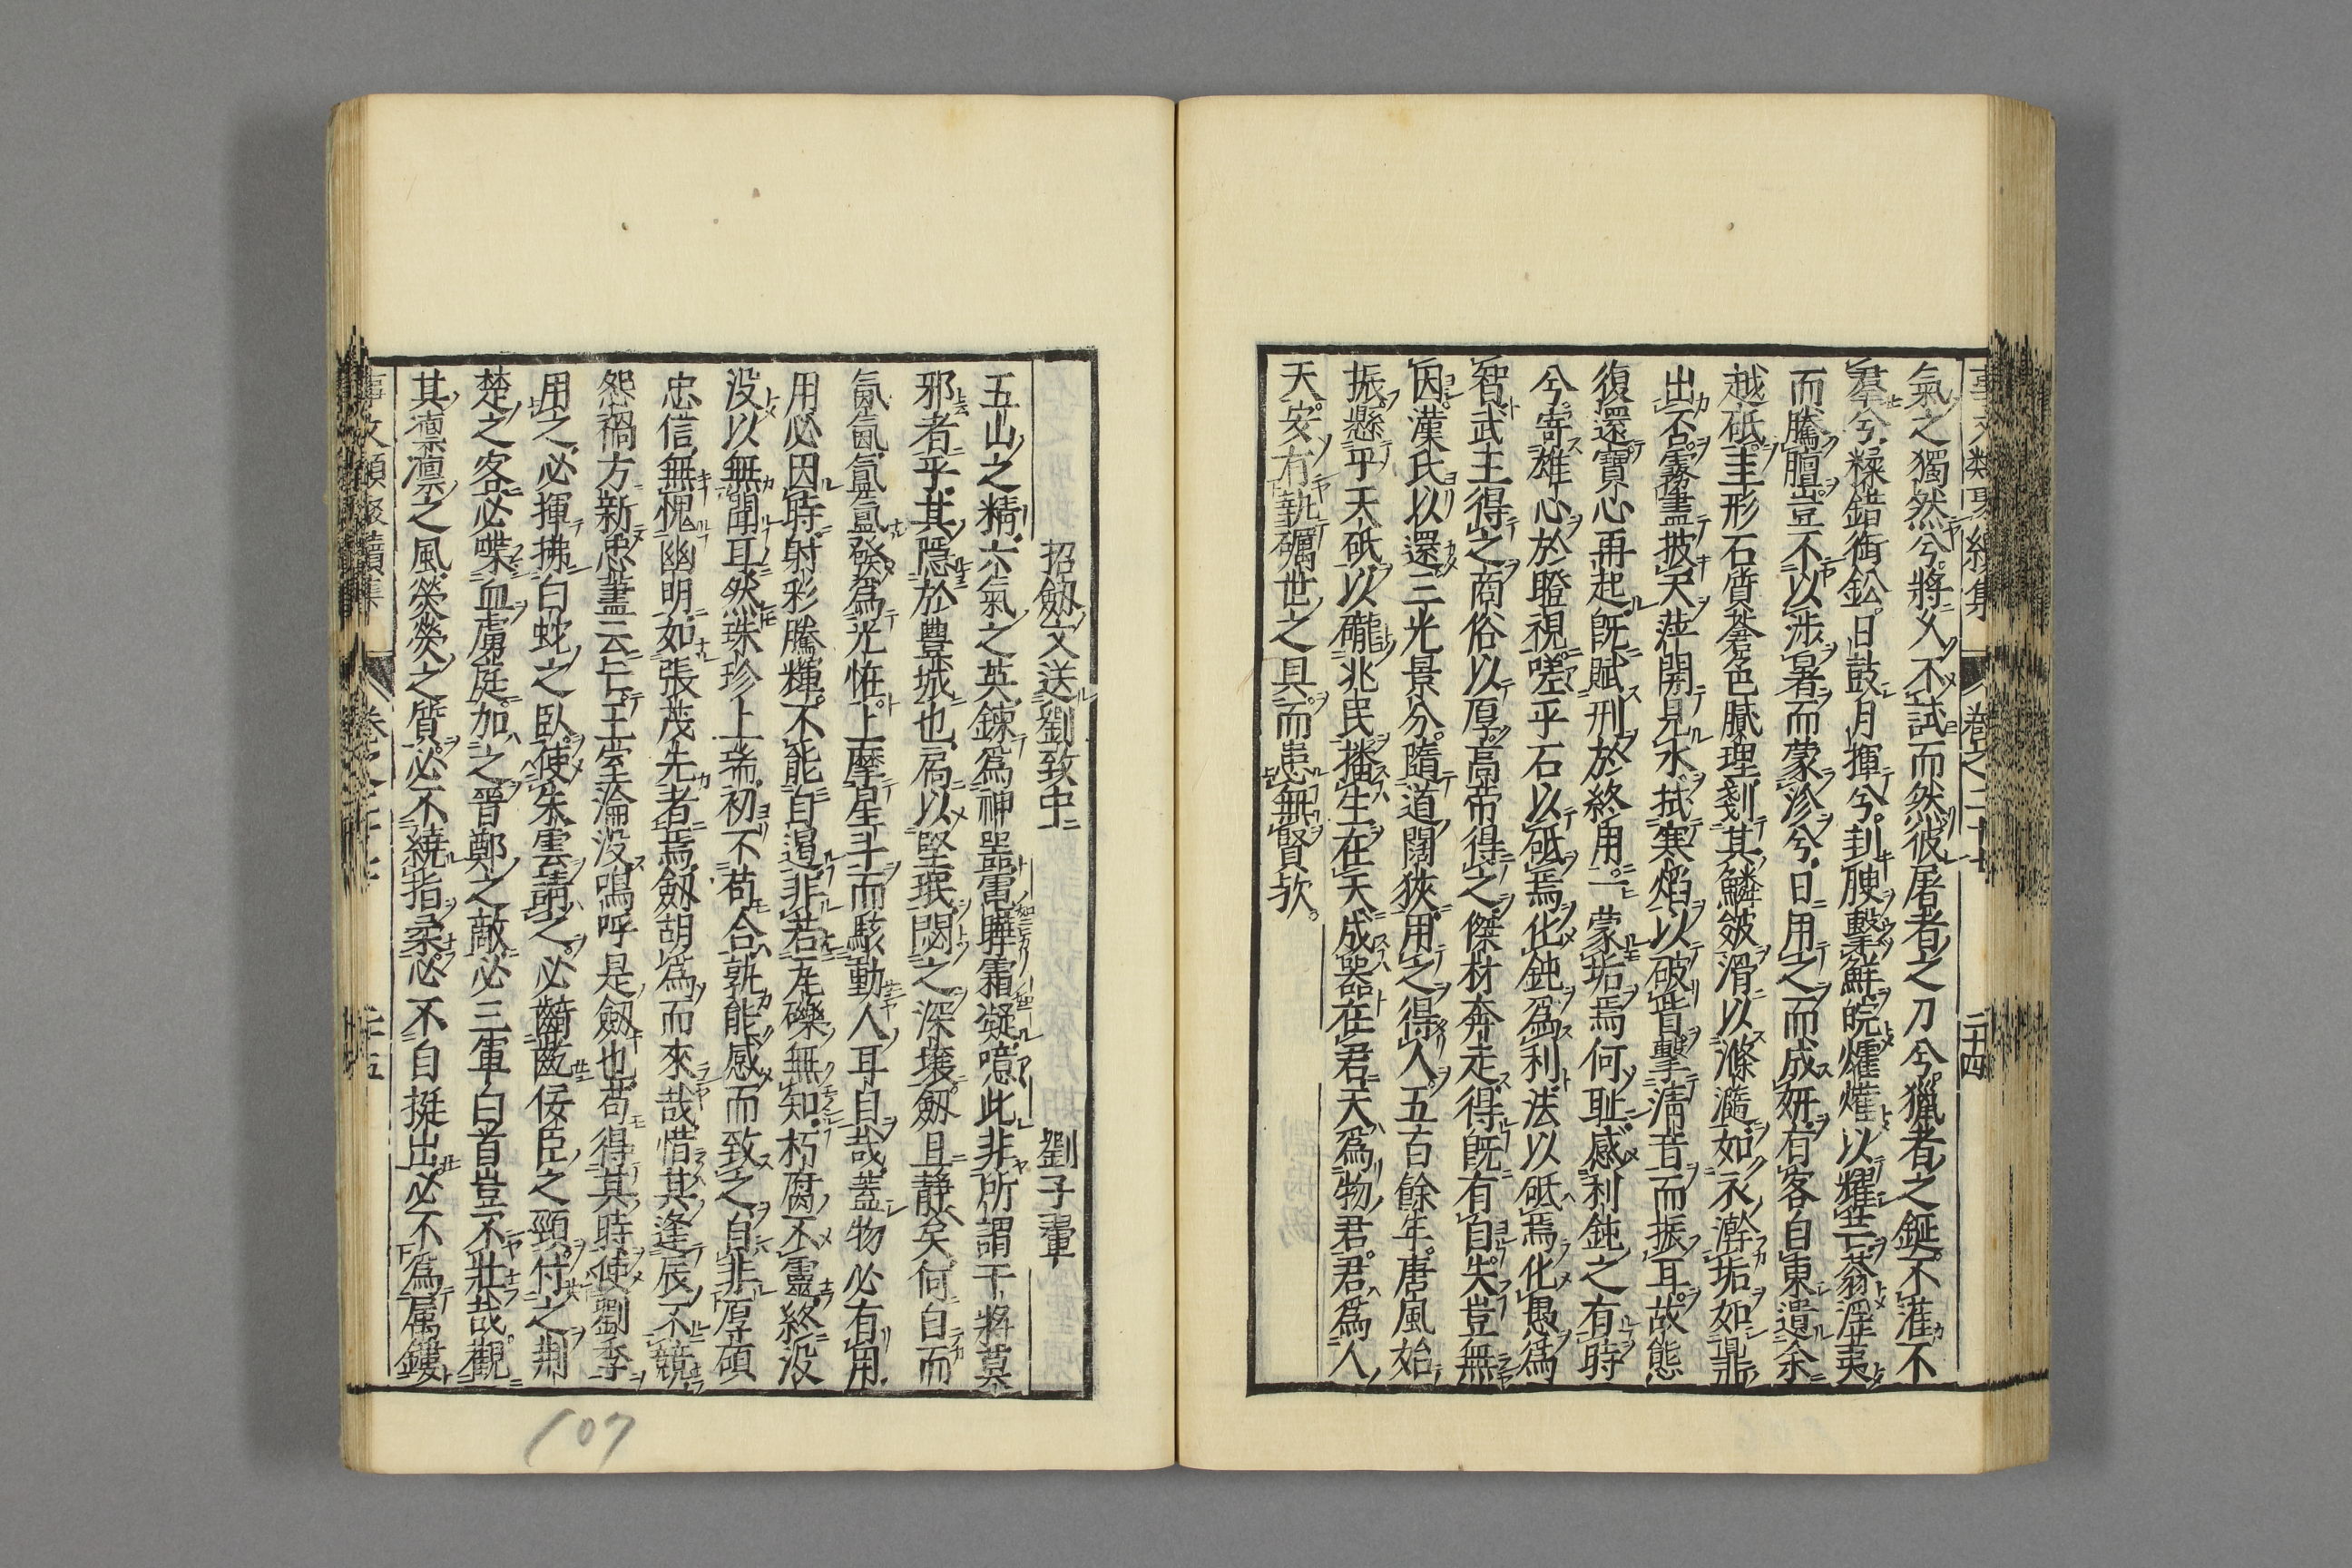 氣之獨然兮將乂不試而然彼屠者之刀兮獵者之鋋不灌不
羣兮糅錯銜鈆日鼓月揮兮刲腴擊鮮睆爟爟以耀芒蓊溼夷
而騰膻豈不以涉暑而蒙沴兮日用之而成妍有客自東遺余
越砥圭形石質蒼色膩理剗其鱗皴滑以滌瀡如衣澣垢如鼎
出否霧盡披天萍開見水拭寒焰以破眥擊清音而振耳故態
復還寶心再起既賦刑於終用一蒙垢焉何耻感利鈍之有時
兮寄雄心於瞪視嗟乎石以砥焉化鈍爲利法以砥焉化愚爲
智武王得之商俗以厚高帝得之傑材奔走得既有自失豈無
因漢氏以還三光景分隨道闊狹用之得人五百餘年唐風始
振懸乎天砥以礲兆民播生在天成器在君天爲物君君爲人
天安有執礪世之具而患無賢欤
事文類聚續集 卷之二十七 二十四
招劔文送劉致中 劉子翬
五山之精六氣之英鍊爲神噐電曄霜凝噫此非所謂干將莫
邪者乎其隱於豊城也扃以堅珉閟之深壤劔且静矣何自而
氤氤氳氳發爲光恠上摩星斗而駭動人耳目哉蓋物必有用
用必因時射彩騰輝不能自遏非若瓦礫無知朽腐不靈終没
没以無聞耳然珠珍上瑞初不苟合孰能感而致之自非厚碩
忠信無愧幽明如張茂先者焉劔胡爲而來哉惜其逢辰不競
怨禍方新忠蓋云亡王室淪没嗚呼是劔也苟得其時使劉季
用之必揮拂白蛇之臥使朱雲請之必齏齕佞臣之頸付之荆
楚之客必喋血虜庭加之晉鄭之敵必三軍白首豈不壯哉觀
其禀凛之風熒熒之質必不繞指柔必不自挺出必不爲属鏤
事文類聚續集 卷之二十七 二十五
107